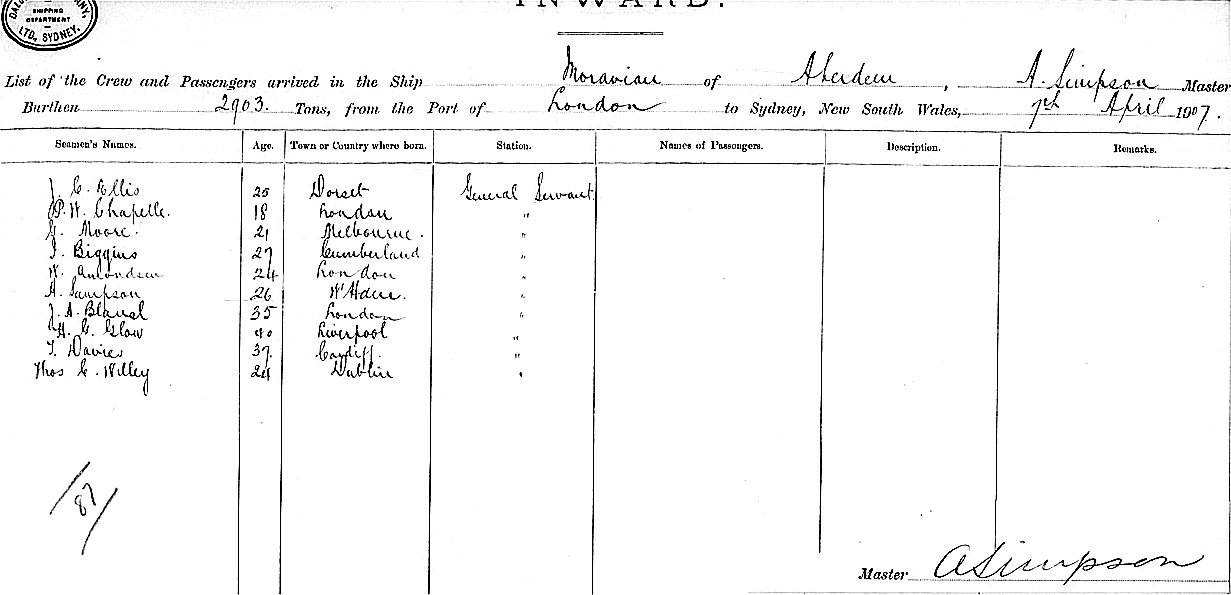 DAL
ANY,
SHIPPING
DEPARTMENT
LTD, SYDNEY.
INWARD.
List of the Crew and Passengers arrived in the Ship Moravian of Aberdeen, A. Simpson Master
Burthen 2903. Tons, from the Port of London to Sydney, New South Wales, 7th April 1907.
Seamen's Names. Age. Town or Country where born. Station. Names of Passengers. Description. Remarks.
J. C. Ellis 25 Dorset General Servant.
P. W. Chapelle. 18 London "
G. Moore. 21 Melbourne. "
I. Biggins 27 Cumberland "
W. Amondsen 24 London "
A. Sampson 26 "
J. A. 35 London "
H. G. Glow 40 Liverpool "
T. Davies 37. Cardiff. "
Thos C. Willey 24 Dublin "
/87/
Master A Simpson